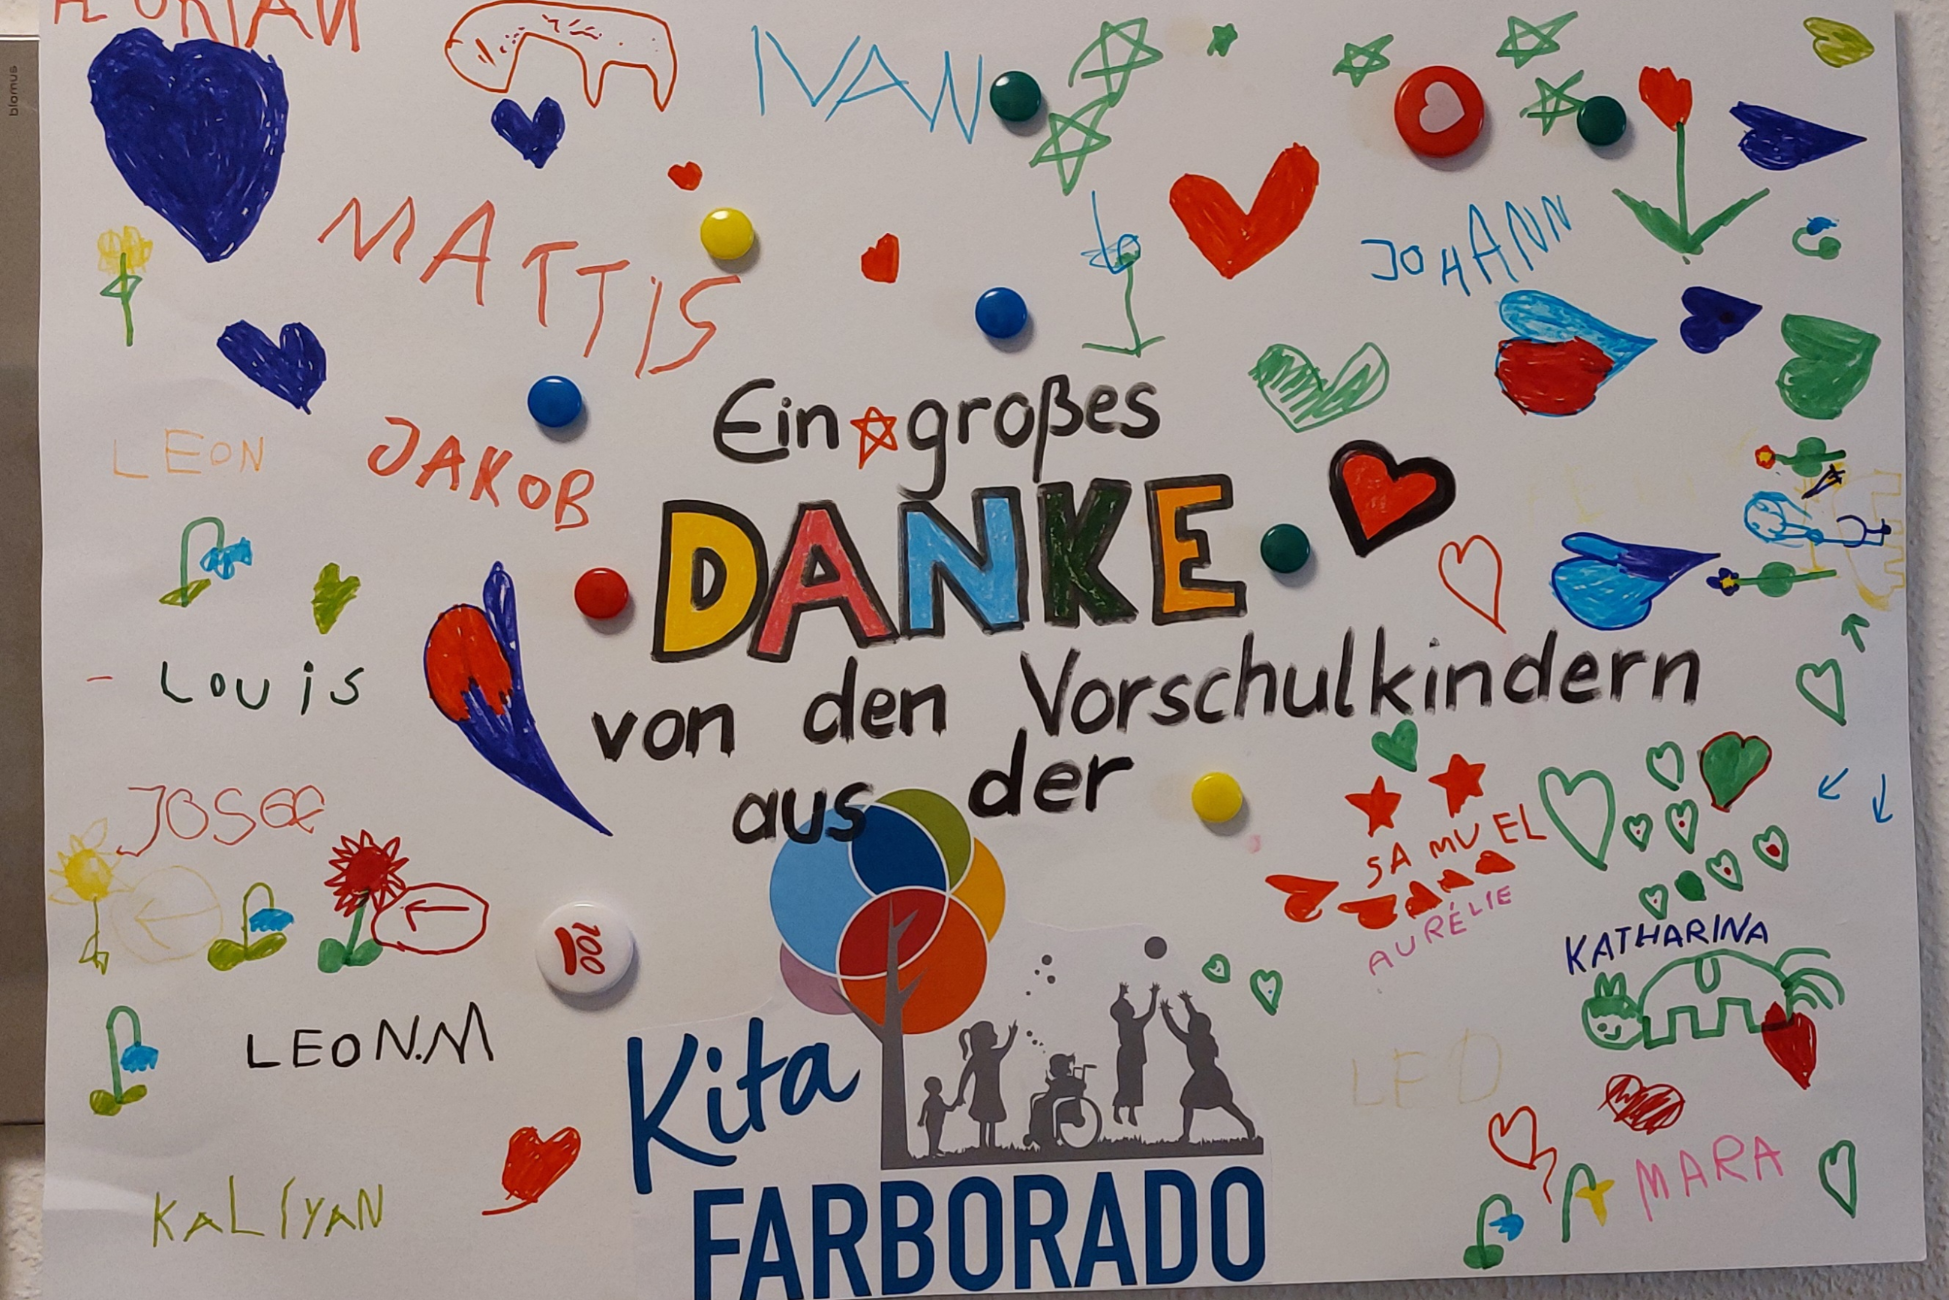 FLORIAN
blomus
IVAN
MATTIS
JOHANN
Ein großes
LEON
JAKOB
DANKE
von den Vorschulkindern
LOUIS
aus der
JOSEE
SAMUEL
AURÉLIE
KATHARINA
100
LEON.M
Kita
LEO
MARA
KALIYAN
FARBORADO